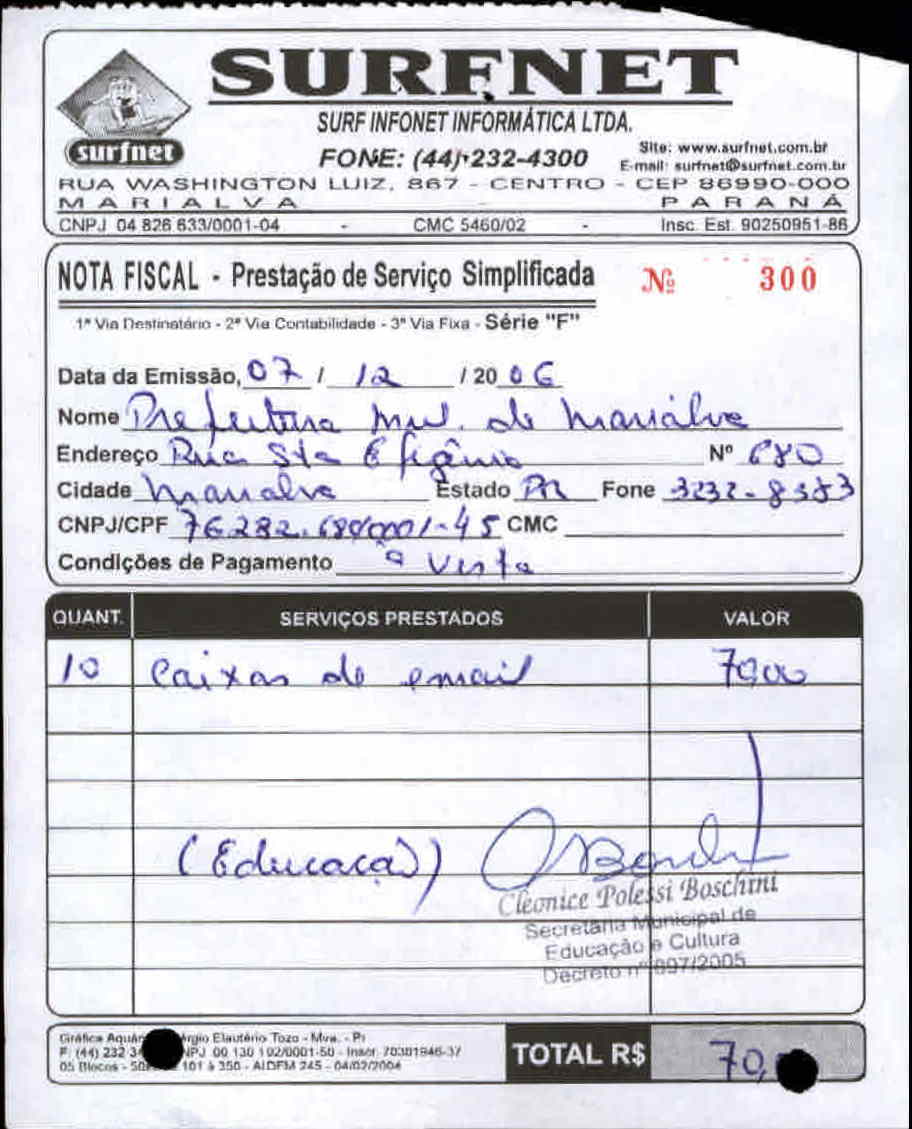 SURFNET
surfnet
SURF INFONET INFORMÁTICA LTDA.
FONE: (44) 232-4300
Site: www.surfnet.com.br
E-mail: surfnet@surfnet.com.br
RUA WASHINGTON LUIZ, 867 - CENTRO - CEP 86990-000
MARIALVA - PARANÁ
CNPJ 04 826 633/0001-04 - CMC 5460/02 - Insc. Est. 90250951-86
NOTA FISCAL - Prestação de Serviço Simplificada Nº 300
1ª Via Destinatário - 2ª Via Contabilidade - 3ª Via Fixa - Série "F"
Data da Emissão, 07 / 12 / 20 06
Nome Prefeitura Mul. de Marialva
Endereço Rua Sta Efigênia Nº 680
Cidade Marialva Estado PR Fone 3232-8383
CNPJ/CPF 76282.680/0001-45 CMC
Condições de Pagamento a Vista
QUANT. SERVIÇOS PRESTADOS VALOR
10 Caixas de email 70,00
(Educação)
Cleonice Polessi Boschini
Secretária Municipal de
Educação e Cultura
Decreto nº 897/2005
Gráfica Elautério Tozo - Mva. - Pr
F: (44) 232 00 130 102/0001-50 - Inscr. 70301946-37
05 Blocos - 101 à 350 - AIDFM 245 - 04/02/2004
TOTAL R$ 70,